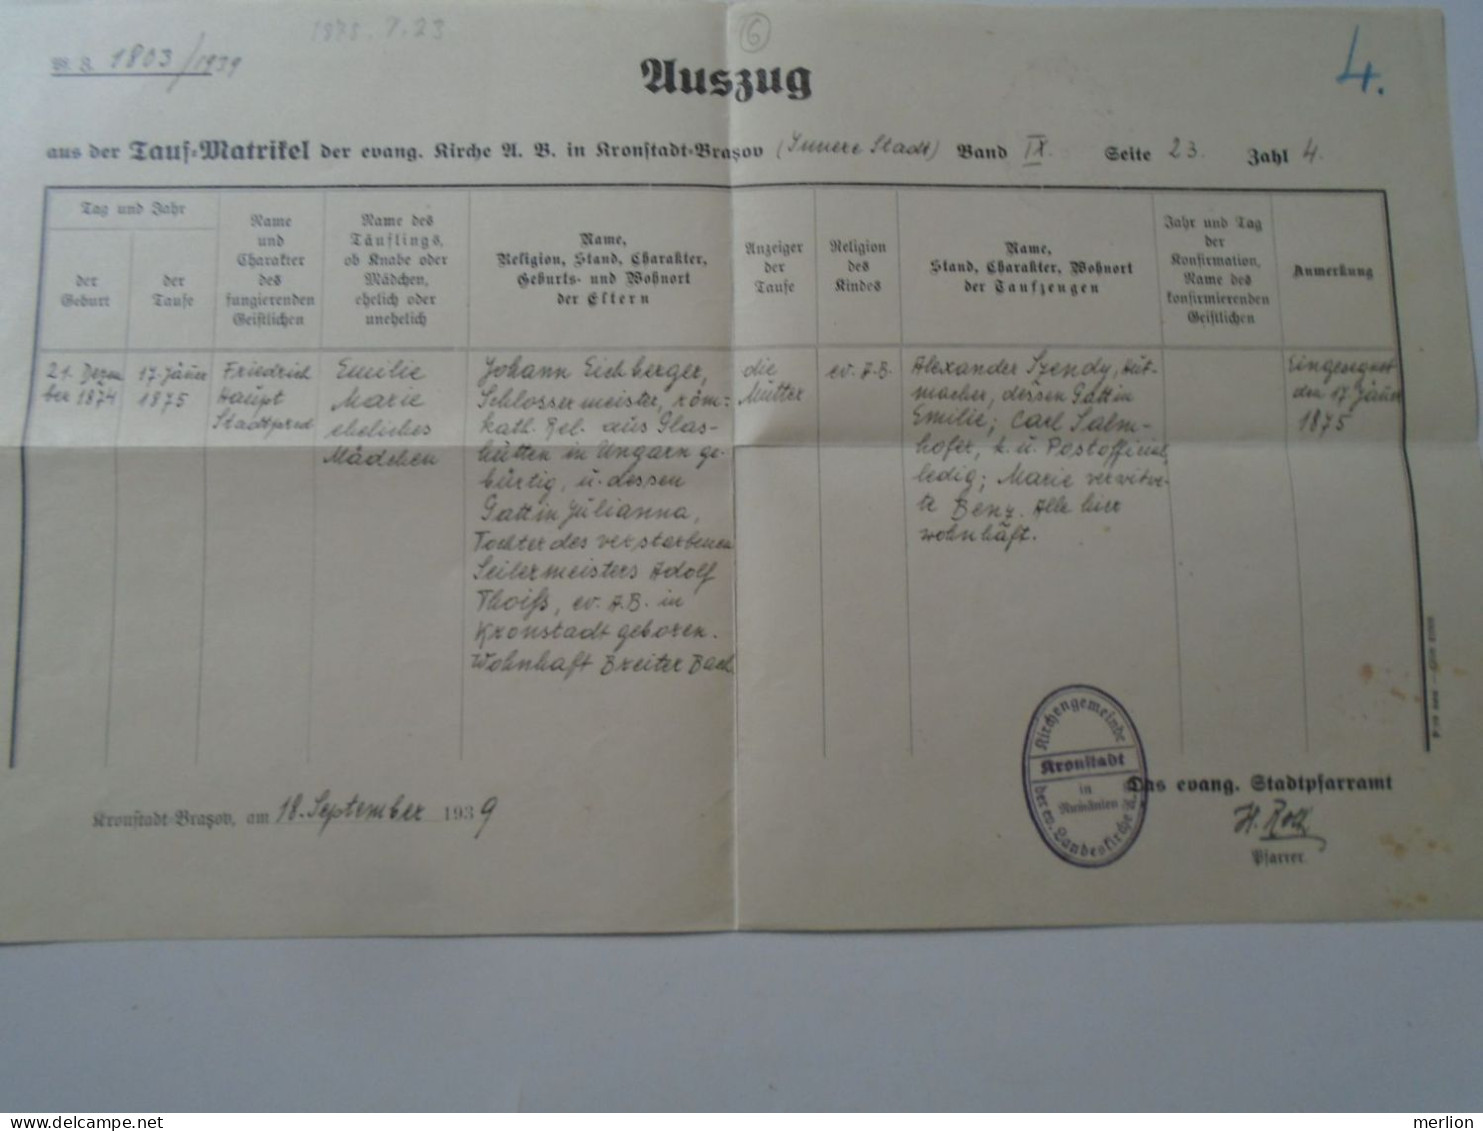 M. Z. 1803/1939
1875.7.23
6
4.
Auszug
aus der Tauf-Matrikel der evang. Kirche A. B. in Kronstadt-Brașov (Innere Stadt) Band IX. Seite 23. Zahl 4.
Tag und Jahr
der
Geburt
der
Taufe
Name
und
Charakter
des
fungierenden
Geistlichen
Name des
Täuflings,
ob Knabe oder
Mädchen,
ehelich oder
unehelich
Name,
Religion, Stand, Charakter,
Geburts- und Wohnort
der Eltern
Anzeiger
der
Taufe
Religion
des
Kindes
Name,
Stand, Charakter, Wohnort
der Taufzeugen
Jahr und Tag
der
Konfirmation,
Name des
konfirmierenden
Geistlichen
Anmerkung
21. Dezem
ber 1874
17. Jäner
1875
Friedrich
Haupt
Stadtpred
Emilie
Marie
eheliches
Mädchen
Johann Eichberger,
Schlossermeister, röm=
kath. Rel. aus Glas-
hütten in Ungarn ge-
bürtig, u. dessen
Gattin Julianna,
Tochter des verstorbenen
Seilermeisters Adolf
Thoiß, ev. A.B. in
Kronstadt geboren.
Wohnhaft Breiter Bach.
die
Mutter
ev. A.B.
Alexander Szendy, Hut-
macher, dessen Gattin
Emilie; Carl Salm-
hofer, k. u. Postofficial,
ledig; Marie verwitwe-
te Benz. Alle hier
wohnhaft.
Eingesegnet
den 17. Jäner
1875
Kronstadt-Brașov, am 18. September 1939
Kirchengemeinde
Kronstadt
in
Rumänien
der ev. Landeskirche A. B.
Das evang. Stadtpfarramt
H. Roth
Pfarrer